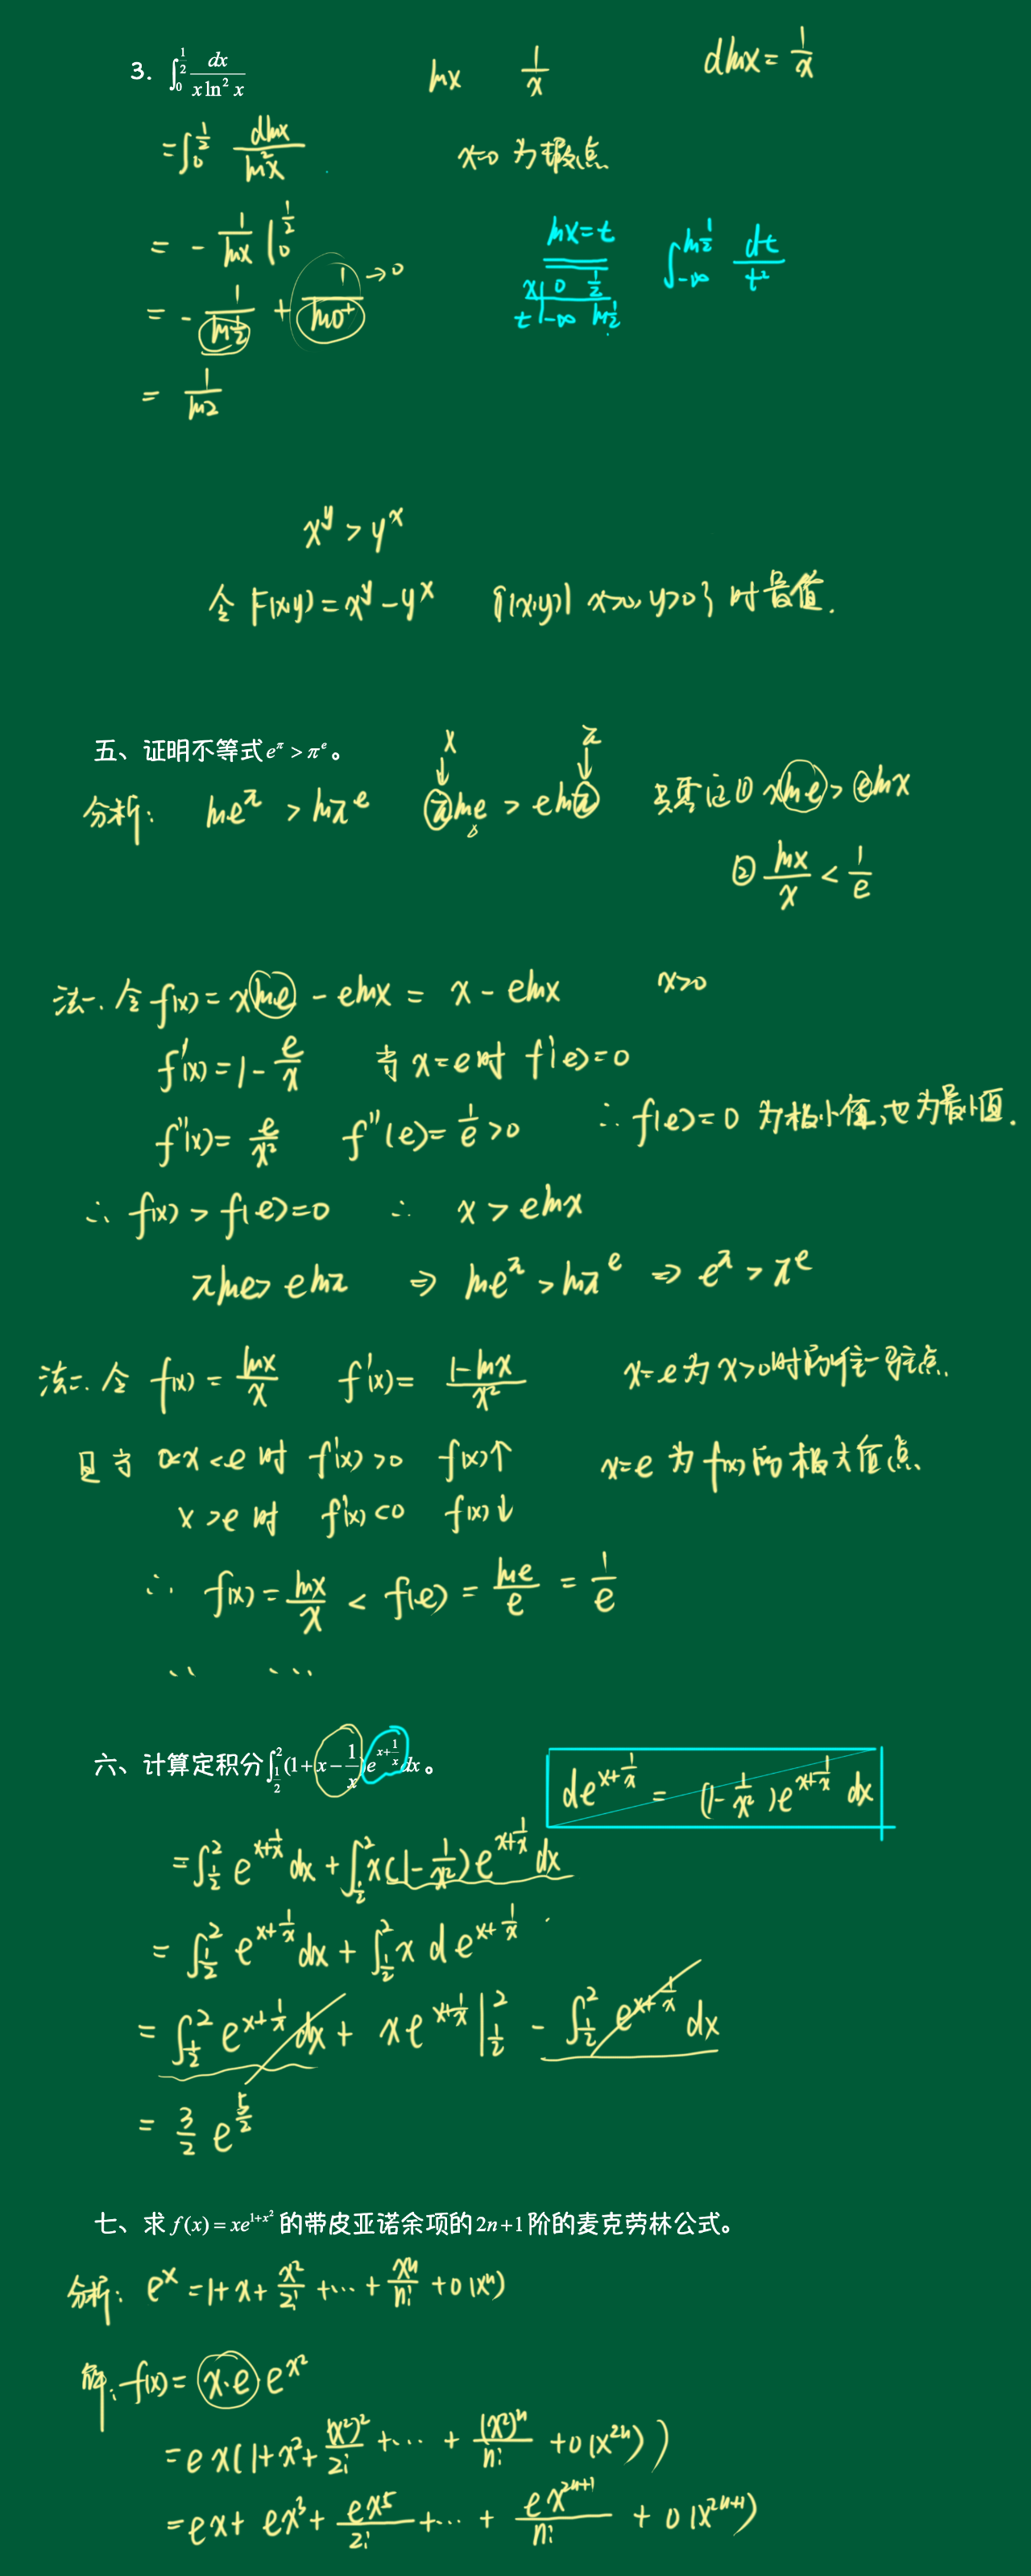 3. ∫_0^{1/2} dx/(x ln² x)    ln x    1/x    d ln x = 1/x
= ∫_0^{1/2} d ln x / ln² x    x=0 为瑕点
= - 1/ln x |_0^{1/2}    ln x = t    ∫_{-∞}^{ln 1/2} dt/t²
= - 1/(ln 1/2) + 1/(ln 0⁺) → 0    x | 0  1/2
t | -∞  ln 1/2
= 1/ln2
x^y > y^x
令 F(x,y) = x^y - y^x    {(x,y) | x>0, y>0} 时最值.
五、证明不等式 e^π > π^e。    x    π
分析: ln e^π > ln π^e    π ln e > e ln π    只需证 ① x ln e > e ln x
② ln x / x < 1/e
法一. 令 f(x) = x ln e - e ln x = x - e ln x    x>0
f'(x) = 1 - e/x    当 x=e 时 f'(e)=0
f''(x) = e/x²    f''(e) = 1/e > 0    ∴ f(e)=0 为极小值,也为最小值.
∴ f(x) > f(e)=0    ∴ x > e ln x
π ln e > e ln π ⇒ ln e^π > ln π^e ⇒ e^π > π^e
法二. 令 f(x) = ln x / x    f'(x) = (1 - ln x)/x²    x=e 为 x>0 时的唯一驻点.
且当 0<x<e 时 f'(x)>0 f(x)↑    x=e 为 f(x) 的极大值点
x>e 时 f'(x)<0 f(x)↓
∴ f(x) = ln x / x < f(e) = ln e / e = 1/e
∵ ...
六、计算定积分 ∫_{1/2}^2 (1+x-1/x)e^{x+1/x}dx。    de^{x+1/x} = (1-1/x²)e^{x+1/x} dx
= ∫_{1/2}^2 e^{x+1/x} dx + ∫_{1/2}^2 x(1-1/x²)e^{x+1/x} dx
= ∫_{1/2}^2 e^{x+1/x} dx + ∫_{1/2}^2 x d e^{x+1/x}
= ∫_{1/2}^2 e^{x+1/x} dx + x e^{x+1/x} |_{1/2}^2 - ∫_{1/2}^2 e^{x+1/x} dx
= 3/2 e^{5/2}
七、求 f(x) = xe^{1+x²} 的带皮亚诺余项的 2n+1 阶的麦克劳林公式。
分析: e^x = 1+x+x²/2!+⋯+x^n/n!+o(x^n)
解: f(x) = x·e·e^{x²}
= e x(1+x²+(x²)²/2!+⋯+(x²)^n/n!+o(x^{2n}))
= ex+ex³+ex⁵/2!+⋯+ex^{2n+1}/n!+o(x^{2n+1})